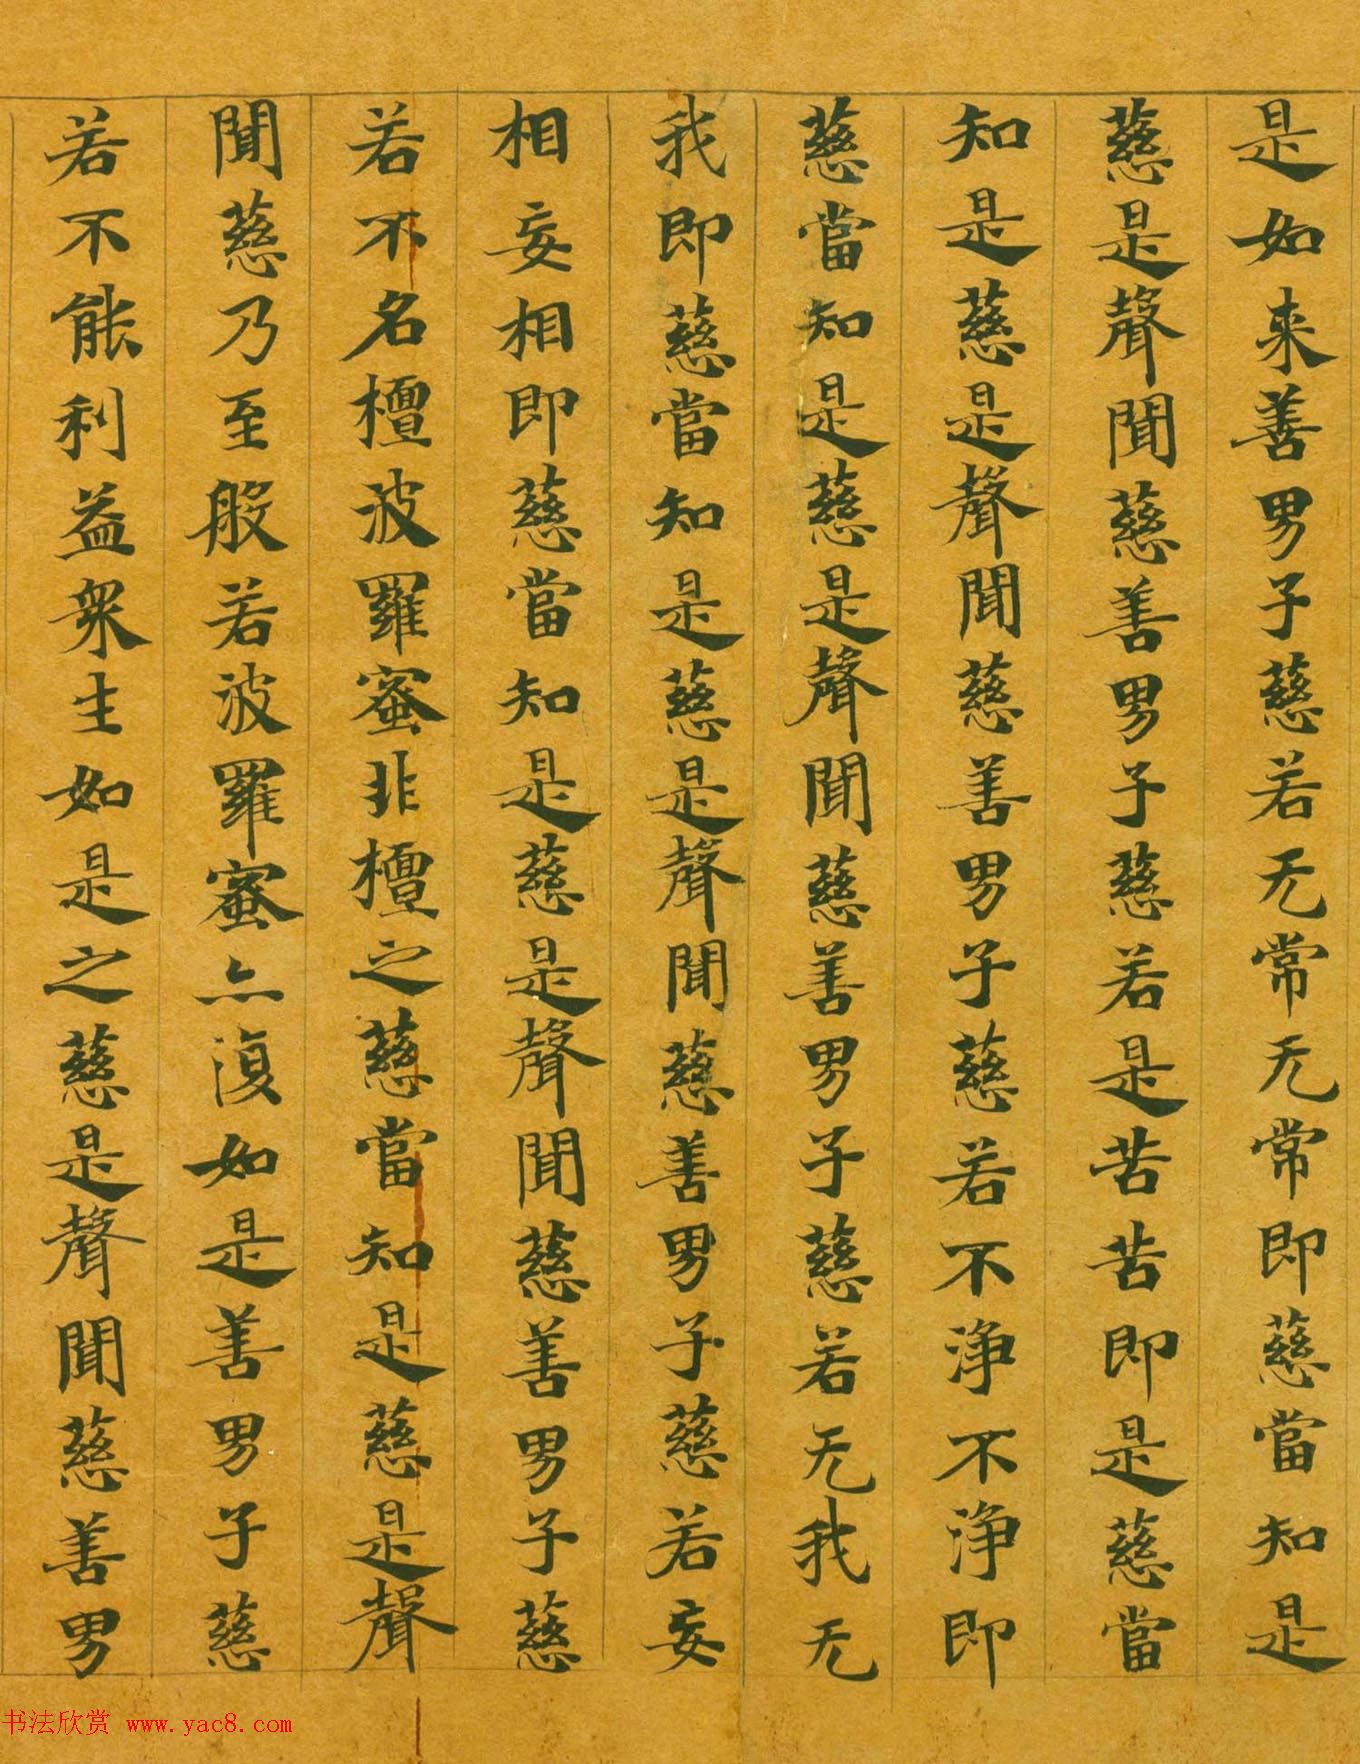 是如来善男子慈若无常无常即慈當知是
慈是聲聞慈善男子慈若是苦苦即是慈當
知是慈是聲聞慈善男子慈若不淨不淨即
慈當知是慈是聲聞慈善男子慈若无我无
我即慈當知是慈是聲聞慈善男子慈若妄
相妄相即慈當知是慈是聲聞慈善男子慈
若不名檀波羅蜜非檀之慈當知是慈是聲
聞慈乃至般若波羅蜜亦復如是善男子慈
若不能利益衆生如是之慈是聲聞慈善男
书法欣赏 www.yac8.com